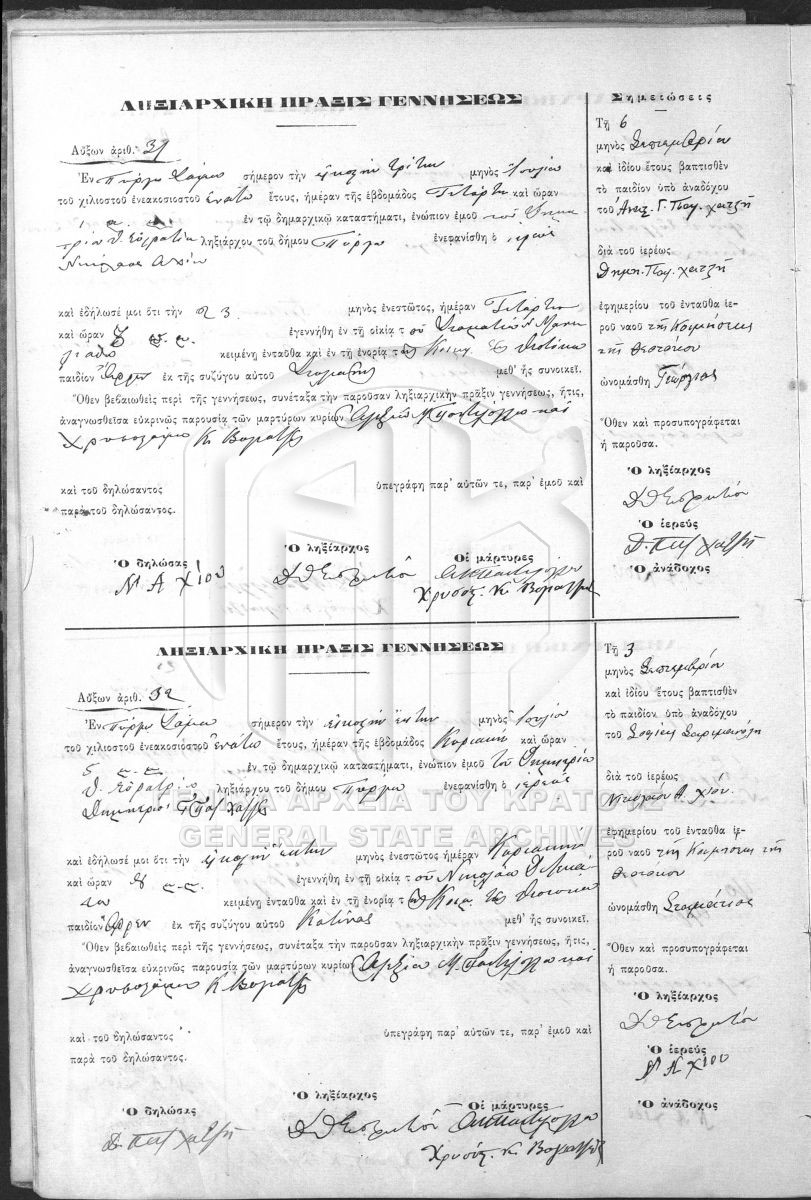 ΛΗΞΙΑΡΧΙΚΗ ΠΡΑΞΙΣ ΓΕΝΝΗΣΕΩΣ
Αὔξων ἀριθ. 31
Ἐν Πύργῳ Σάμου σήμερον τὴν εἰκοστὴν τρίτην μηνὸς Ἰουλίου
τοῦ χιλιοστοῦ ἐνεακοσιοστοῦ ἐνάτου ἔτους, ἡμέραν τῆς ἑβδομάδος Τετάρτην καὶ ὥραν
ἐν τῷ δημαρχικῷ καταστήματι, ἐνώπιον ἐμοῦ τοῦ Δημη
τρίου Θ. ληξιάρχου τοῦ δήμου Πύργου ἐνεφανίσθη ὁ ἱερεὺς
Νικόλαος Α. Χίου
καὶ ἐδήλωσέ μοι ὅτι τὴν 23 μηνὸς ἐνεστῶτος, ἡμέραν Τετάρτην
καὶ ὥραν ἐγεννήθη ἐν τῇ οἰκίᾳ τοῦ
κειμένῃ ἐνταῦθα καὶ ἐν τῇ ἐνορίᾳ τῆς Κοιμ. τῆς Θεοτόκου
παιδίον ἄρρεν ἐκ τῆς συζύγου αὐτοῦ μεθ' ἧς συνοικεῖ.
Ὅθεν βεβαιωθεὶς περὶ τῆς γεννήσεως, συνέταξα τὴν παροῦσαν ληξιαρχικὴν πρᾶξιν γεννήσεως, ἥτις,
ἀναγνωσθεῖσα εὐκρινῶς παρουσίᾳ τῶν μαρτύρων κυρίων καὶ
Κ.
καὶ τοῦ δηλώσαντος ὑπεγράφη παρ' αὐτῶν τε, παρ' ἐμοῦ καὶ
παρὰ τοῦ δηλώσαντος.
Ὁ δηλώσας Ὁ ληξίαρχος Οἱ μάρτυρες
Ν Α Χίου
Χρυσόστ. Κ.
Σημειώσεις
Τῇ 6
μηνὸς Σεπτεμβρίου
καὶ ἰδίου ἔτους βαπτισθὲν
τὸ παιδίον ὑπὸ ἀναδόχου
τοῦ Γ. Παπ. χατζῆ
διὰ τοῦ ἱερέως
Δημ. Παπ. χατζῆ
ἐφημερίου τοῦ ἐνταῦθα ἱε-
ροῦ ναοῦ τῆς Κοιμήσεως
τῆς Θεοτόκου
ὠνομάσθη Γεώργιος
Ὅθεν καὶ προσυπογράφεται
ἡ παροῦσα.
Ὁ ληξίαρχος
Ὁ ἱερεύς
Δ. Παπ χατζῆ
Ὁ ἀνάδοχος
ΛΗΞΙΑΡΧΙΚΗ ΠΡΑΞΙΣ ΓΕΝΝΗΣΕΩΣ
Αὔξων ἀριθ. 32
Ἐν Πύργῳ Σάμου σήμερον τὴν εἰκοστὴν ἕκτην μηνὸς Ἰουλίου
τοῦ χιλιοστοῦ ἐνεακοσιοστοῦ ἐνάτου ἔτους, ἡμέραν τῆς ἑβδομάδος Κυριακὴν καὶ ὥραν
ἐν τῷ δημαρχικῷ καταστήματι, ἐνώπιον ἐμοῦ τοῦ Δημητρίου
Θ. ληξιάρχου τοῦ δήμου Πύργου ἐνεφανίσθη ὁ ἱερεὺς
Δημήτριος Παπ χατζῆ
ΓΕΝΙΚΑ ΑΡΧΕΙΑ ΤΟΥ ΚΡΑΤΟΥΣ
GENERAL STATE ARCHIVES
καὶ ἐδήλωσέ μοι ὅτι τὴν εἰκοστὴν ἕκτην μηνὸς ἐνεστῶτος ἡμέραν Κυριακὴν
καὶ ὥραν ἐγεννήθη ἐν τῇ οἰκίᾳ τοῦ Νικολάου
κειμένῃ ἐνταῦθα καὶ ἐν τῇ ἐνορίᾳ τῆς Κοιμ. τῆς Θεοτόκου
παιδίον ἄρρεν ἐκ τῆς συζύγου αὐτοῦ Κατίνας μεθ' ἧς συνοικεῖ.
Ὅθεν βεβαιωθεὶς περὶ τῆς γεννήσεως, συνέταξα τὴν παροῦσαν ληξιαρχικὴν πρᾶξιν γεννήσεως, ἥτις,
ἀναγνωσθεῖσα εὐκρινῶς παρουσίᾳ τῶν μαρτύρων κυρίων καὶ
Κ.
καὶ τοῦ δηλώσαντος ὑπεγράφη παρ' αὐτῶν τε, παρ' ἐμοῦ καὶ
παρὰ τοῦ δηλώσαντος.
Ὁ δηλώσας Ὁ ληξίαρχος Οἱ μάρτυρες
Δ. Παπ χατζῆ
Χρυσόστ. Κ.
Τῇ 3
μηνὸς Σεπτεμβρίου
καὶ ἰδίου ἔτους βαπτισθὲν
τὸ παιδίον ὑπὸ ἀναδόχου
τοῦ
διὰ τοῦ ἱερέως
Νικολάου Α. Χίου.
ἐφημερίου τοῦ ἐνταῦθα ἱε-
ροῦ ναοῦ τῆς Κοιμήσεως τῆς
Θεοτόκου
ὠνομάσθη Σταμάτιος
Ὅθεν καὶ προσυπογράφεται
ἡ παροῦσα.
Ὁ ληξίαρχος
Ὁ ἱερεύς
Ν Α Χίου
Ὁ ἀνάδοχος